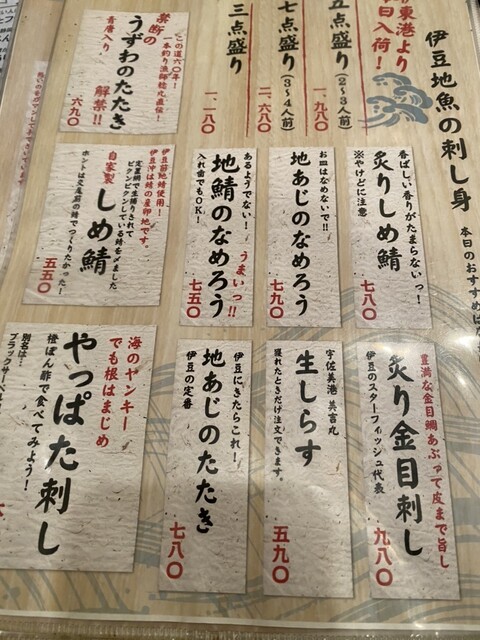 伊豆地魚の刺し身
本日のおすすめは
伊東港より
本日入荷！
五点盛り（２〜３人前）
一、九八〇
七点盛り（３〜４人前）
二、六八〇
三点盛り
一、一八〇
この道六〇年！
一本釣り漁師稔丸直伝！
禁断の
うずわのたたき
青唐入り
解禁！！
六九〇
香ばしい香りがたまらないっ！
炙りしめ鯖
※やけどに注意
七八〇
お皿はなめないで!!
地あじのなめろう
七九〇
あるようでない！
うまいっ!!
地鯖のなめろう
入れ歯でもOK！
七五〇
伊豆前地鯖使用！
伊豆沖は鯖の産卵地です。
定置網で生捕りされて
ピクンピクンしている鯖を〆ました
自家製
しめ鯖
ホントは交尾前の鯖でつくりたかった！
五五〇
豊満な金目鯛あぶって皮まで旨し
炙り金目刺し
伊豆のスターフィッシュ代表
九八〇
宇佐美港 美吉丸
生しらす
獲れたときだけ注文できます。
五九〇
伊豆にきたらこれ！
地あじのたたき
伊豆の定番
七八〇
海のヤンキー
でも根はまじめ
やっぱた刺し
橙ぽん酢で食べてみよう！
別名は…